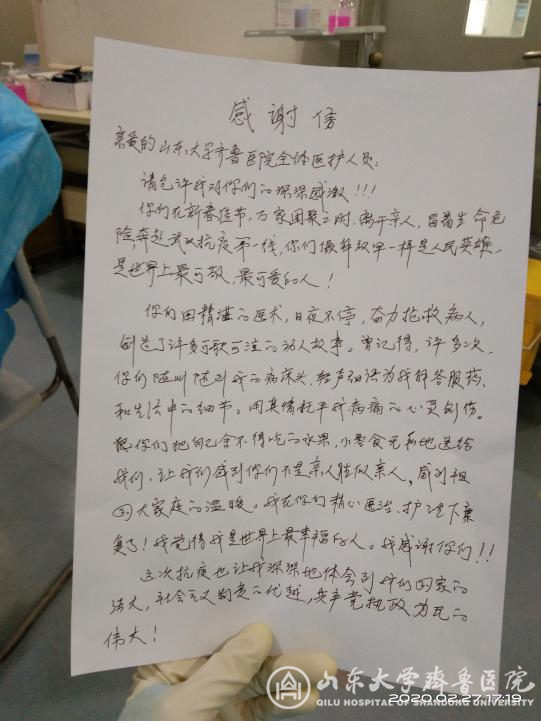 感谢信
亲爱的山东大学齐鲁医院全体医护人员:
请允许我对你们的深深感激!!!
你们在新春佳节,万家团聚之时,离开亲人,冒着生命危
险,奔赴武汉抗疫第一线,你们像解放军一样是人民英雄,
是世界上最可敬,最可爱的人!
你们用精湛的医术,日夜不停,奋力抢救病人,
创造了许多可歌可泣的动人故事。曾记得,许多次,
你们随叫随到我的病床头,轻声细语为我解答服药,
和生活中的细节。用真情抚平我病痛的心灵创伤。
你们把自己舍不得吃的水果,小零食无私地送给
我们,让我们感到你们不是亲人胜似亲人,感到祖
国大家庭的温暖。我在你们精心医治,护理下康
复了!我觉得我是世界上最幸福的人。我感谢你们!!
这次抗疫也让我深深地体会到我们国家的
强大,社会主义制度的优越,共产党执政为民的
伟大!
山东大学齐鲁医院
QILU HOSPITAL OF SHANDONG UNIVERSITY
2020.02.27 17:19